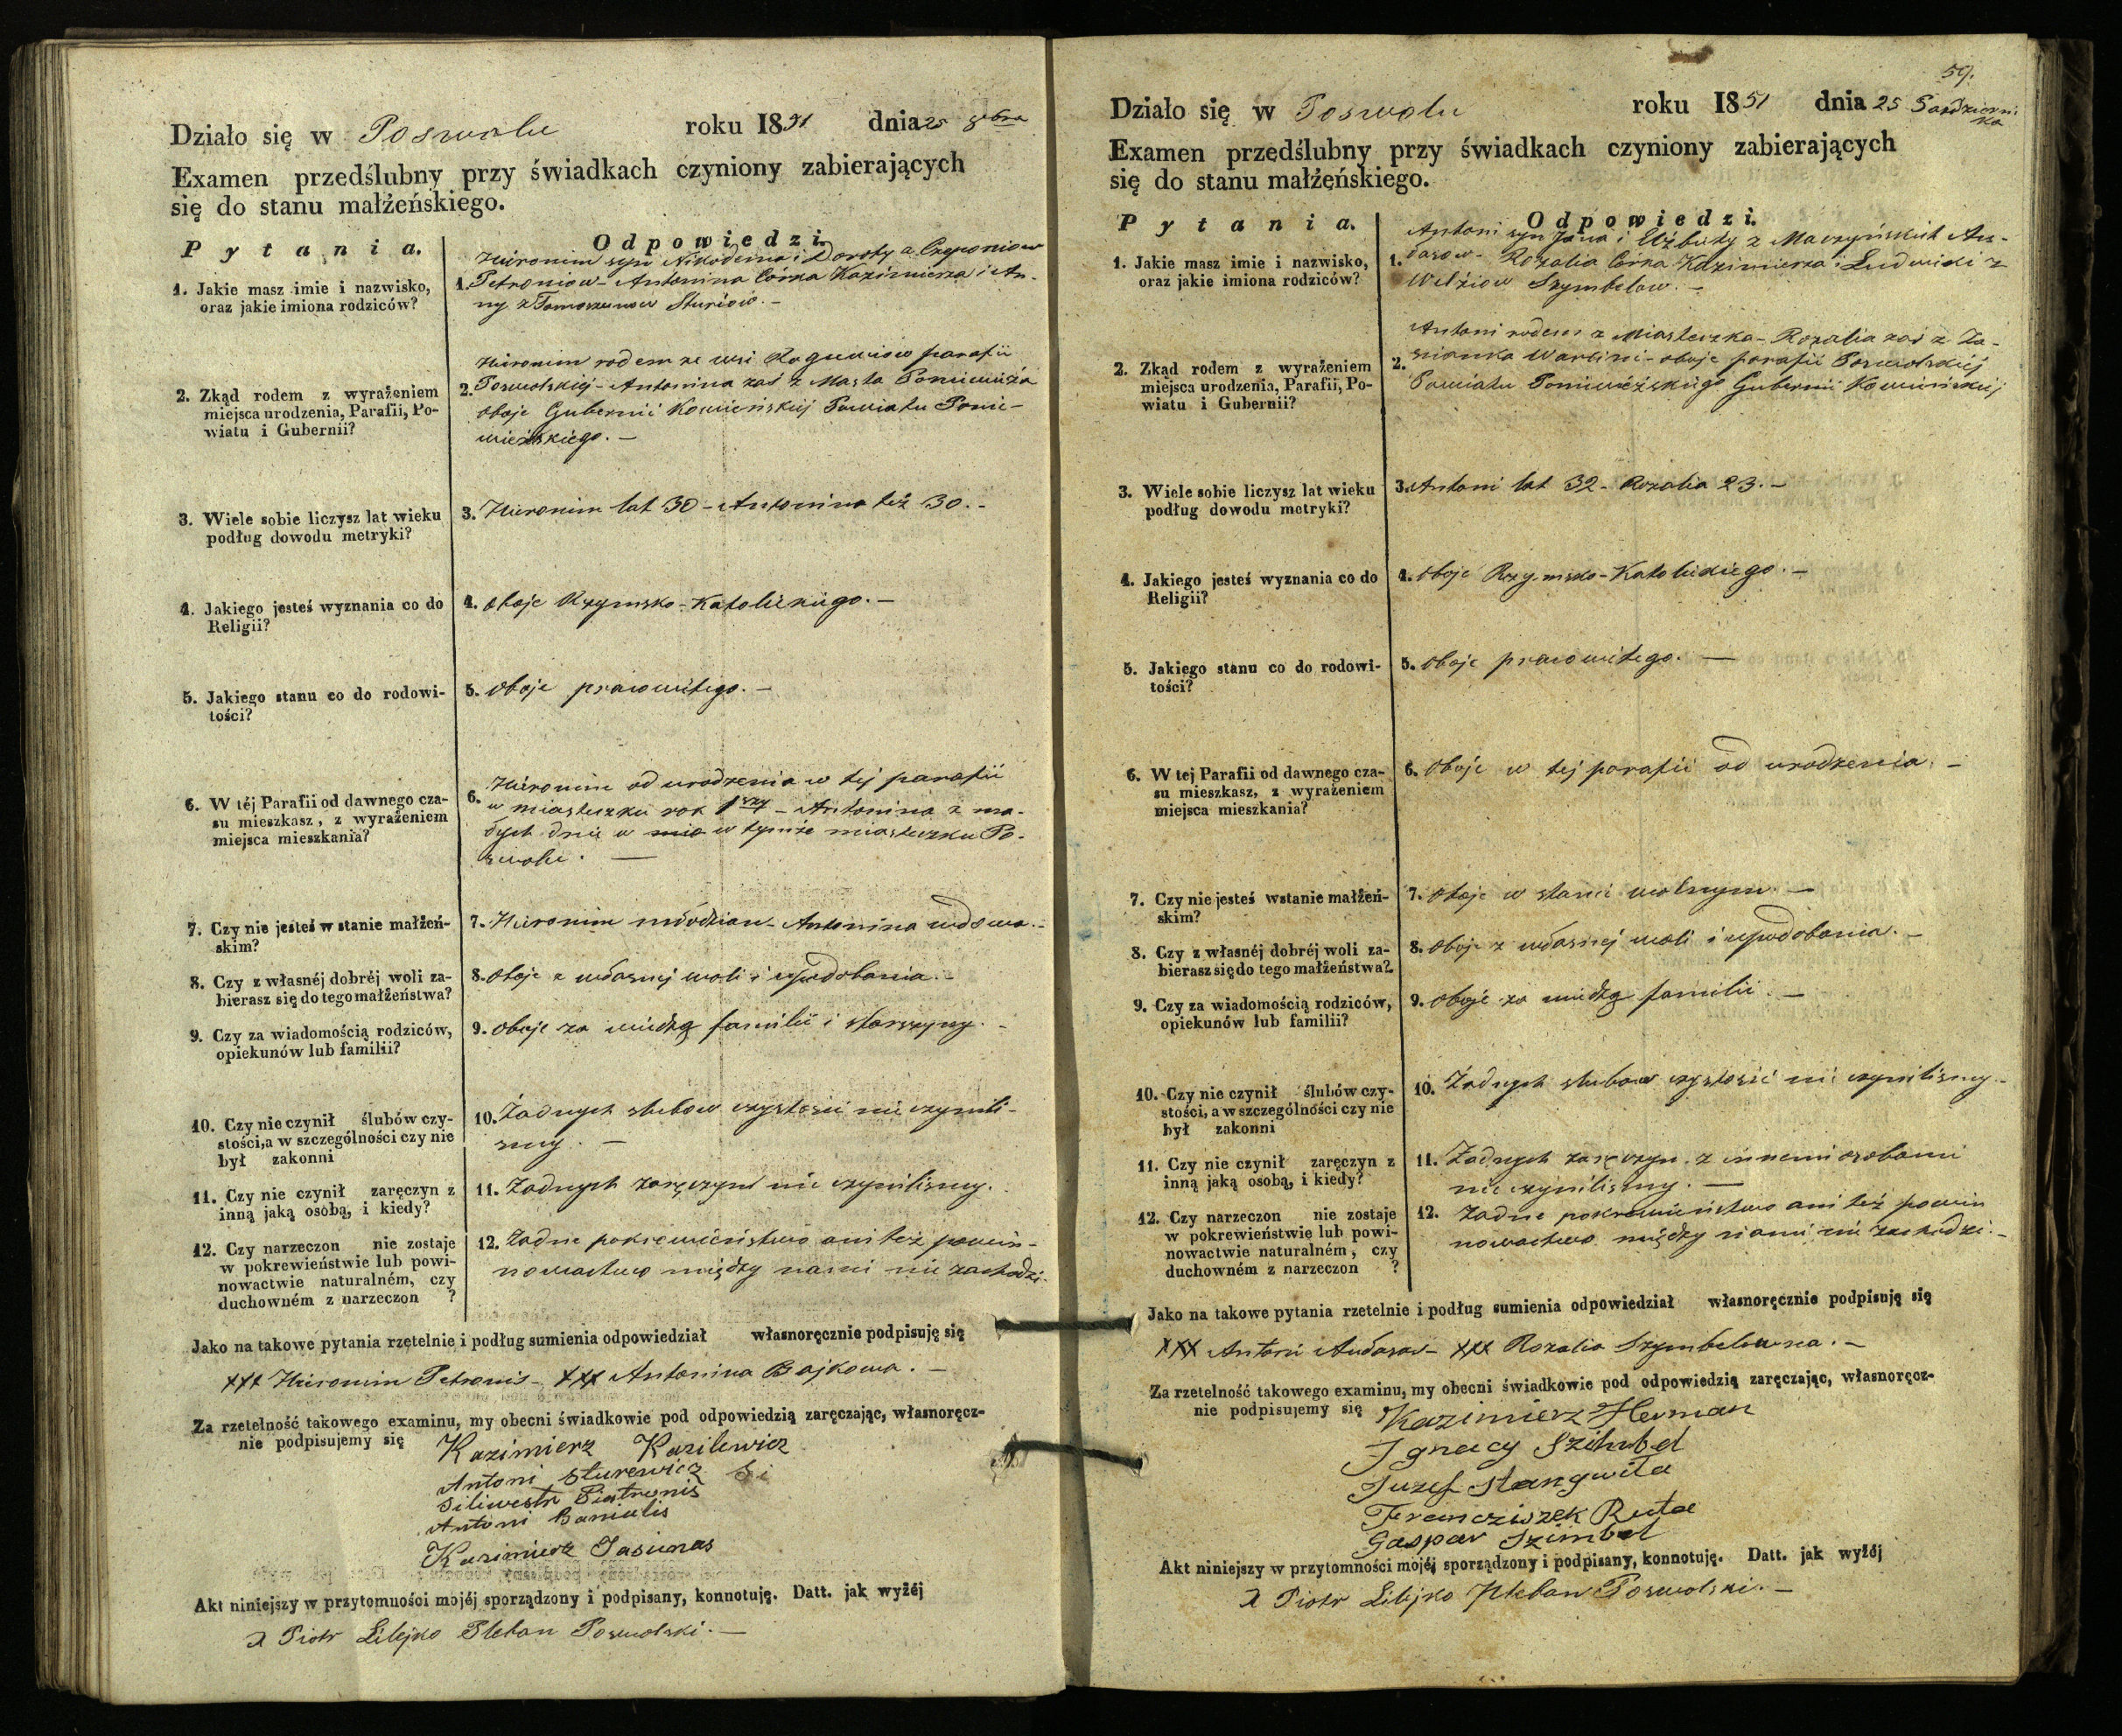 Działo się w Poswolu roku 1851 dnia 25 8bra
Examen przedślubny przy świadkach czyniony zabierających
się do stanu małżeńskiego.
P y t a n i a.
O d p o w i e d z i.
1. Jakie masz imie i nazwisko,
oraz jakie imiona rodziców?
Hieronim syn Nikodema i Doroty z
1. Petroniow - Antonina Córka Kazimierza i An-
ny z
2. Zkąd rodem z wyrażeniem
miejsca urodzenia, Parafii, Po-
wiatu i Gubernii?
Hieronim rodem ze wsi parafii
2. Poswolskiej - Antonina zaś z Miasta Poniewieża
oboje Gubernii Kowieńskiej Powiatu Ponie-
wieżskiego. -
3. Wiele sobie liczysz lat wieku
podług dowodu metryki?
3. Hieronim lat 30 - Antonina też 30. -
4. Jakiego jesteś wyznania co do
Religii?
4. Oboje Rzymsko-Katolickiego. -
5. Jakiego stanu co do rodowi-
tości?
5. Oboje prawowitego. -
6. W téj Parafii od dawnego cza-
su mieszkasz, z wyrażeniem
miejsca mieszkania?
Hieronim od urodzenia w tej parafii
6. w miasteczku rok 1szy - Antonina z ma-
łych dnie w mia w tymże miasteczku Po-
swolu. -
7. Czy nie jesteś w stanie małżeń-
skim?
7. Hieronim młodzian - Antonina wdowa. -
8. Czy z własnéj dobréj woli za-
bierasz się do tego małżeństwa?
8. Oboje z własnej woli i upodobania. -
9. Czy za wiadomością rodziców,
opiekunów lub familii?
9. Oboje za wiedzą familii i starszyny. -
10. Czy nie czynił ślubów czy-
stości, a w szczególności czy nie
był zakonni
10. Żadnych slubow czystości nie czynili-
smy. -
11. Czy nie czynił zaręczyn z
inną jaką osobą, i kiedy?
11. Żadnych zaręczyn nie czynilismy.
12. Czy narzeczon nie zostaje
w pokrewieństwie lub powi-
nowactwie naturalném, czy
duchowném z narzeczon ?
12. Żadne pokrewieństwo ani też powin-
nowactwo między nami nie zachodzi. -
Jako na takowe pytania rzetelnie i podług sumienia odpowiedział własnoręcznie podpisuję się
XXX Hieronim Petronis - XXX Antonina Bajkowa. -
Za rzetelność takowego examinu, my obecni świadkowie pod odpowiedzią zaręczając, własnoręcz-
nie podpisujemy się
Kazimierz Kazilewicz
Antoni Sturewicz
Siliwestr Piatrunis
Antoni Baniulis
Kazimierz Jasiunas
Akt niniejszy w przytomności mojéj sporządzony i podpisany, konnotuję. Datt. jak wyżéj
X Piotr Lilejko Pleban Poswolski. -
59.
Działo się w Poswolu roku 1851 dnia 25 Październi-
ka
Examen przedślubny przy świadkach czyniony zabierających
się do stanu małżeńskiego.
P y t a n i a.
O d p o w i e d z i.
1. Jakie masz imie i nazwisko,
oraz jakie imiona rodziców?
Antoni syn Jana i Elżbiety z
1. Rozalia Córka Kazimierza i Ludwiki z
Szymbelow. -
2. Zkąd rodem z wyrażeniem
miejsca urodzenia, Parafii, Po-
wiatu i Gubernii?
Antoni rodem z Miasteczka - Rozalia zaś z Za-
2. oboje parafii Poswolskiej
Powiatu Poniewieżskiego Gubernii Kowieńskiej
3. Wiele sobie liczysz lat wieku
podług dowodu metryki?
3. Antoni lat 32 - Rozalia 23. -
4. Jakiego jesteś wyznania co do
Religii?
4. Oboje Rzymsko-Katolickiego. -
5. Jakiego stanu co do rodowi-
tości?
5. Oboje prawowitego. -
6. W tej Parafii od dawnego cza-
su mieszkasz, z wyrażeniem
miejsca mieszkania?
6. Oboje w tej parafii od urodzenia. -
7. Czy nie jesteś wstanie małżeń-
skim?
7. Oboje w stanie wolnym. -
8. Czy z własnéj dobréj woli za-
bierasz się do tego małżeństwa?
8. Oboje z własnej woli i upodobania. -
9. Czy za wiadomością rodziców,
opiekunów lub familii?
9. Oboje za wiedzą familii. -
10. Czy nie czynił ślubów czy-
stości, a w szczególności czy nie
był zakonni
10. Żadnych slubow czystości nie czynilismy. -
11. Czy nie czynił zaręczyn z
inną jaką osobą, i kiedy?
11. Żadnych zaręczyn z innemi osobami
nie czynilismy. -
12. Czy narzeczon nie zostaje
w pokrewieństwie lub powi-
nowactwie naturalném, czy
duchowném z narzeczon ?
12. Żadne pokrewieństwo ani też powin
nowactwo między nami nie zachodzi. -
Jako na takowe pytania rzetelnie i podług sumienia odpowiedział własnoręcznie podpisuję się
XXX Antoni Audaras - XXX Rozalia Szymbelowna. -
Za rzetelność takowego examinu, my obecni świadkowie pod odpowiedzią zaręczając, własnoręcz-
nie podpisujemy się
Kazimierz Herman
Ignacy Szimbel
Juzef Stangwiła
Franciszek Ruta
Gaspar Szimbel
Akt niniejszy w przytomności mojéj sporządzony i podpisany, konnotuję. Datt. jak wyżéj
X Piotr Lilejko Pleban Poswolski. -